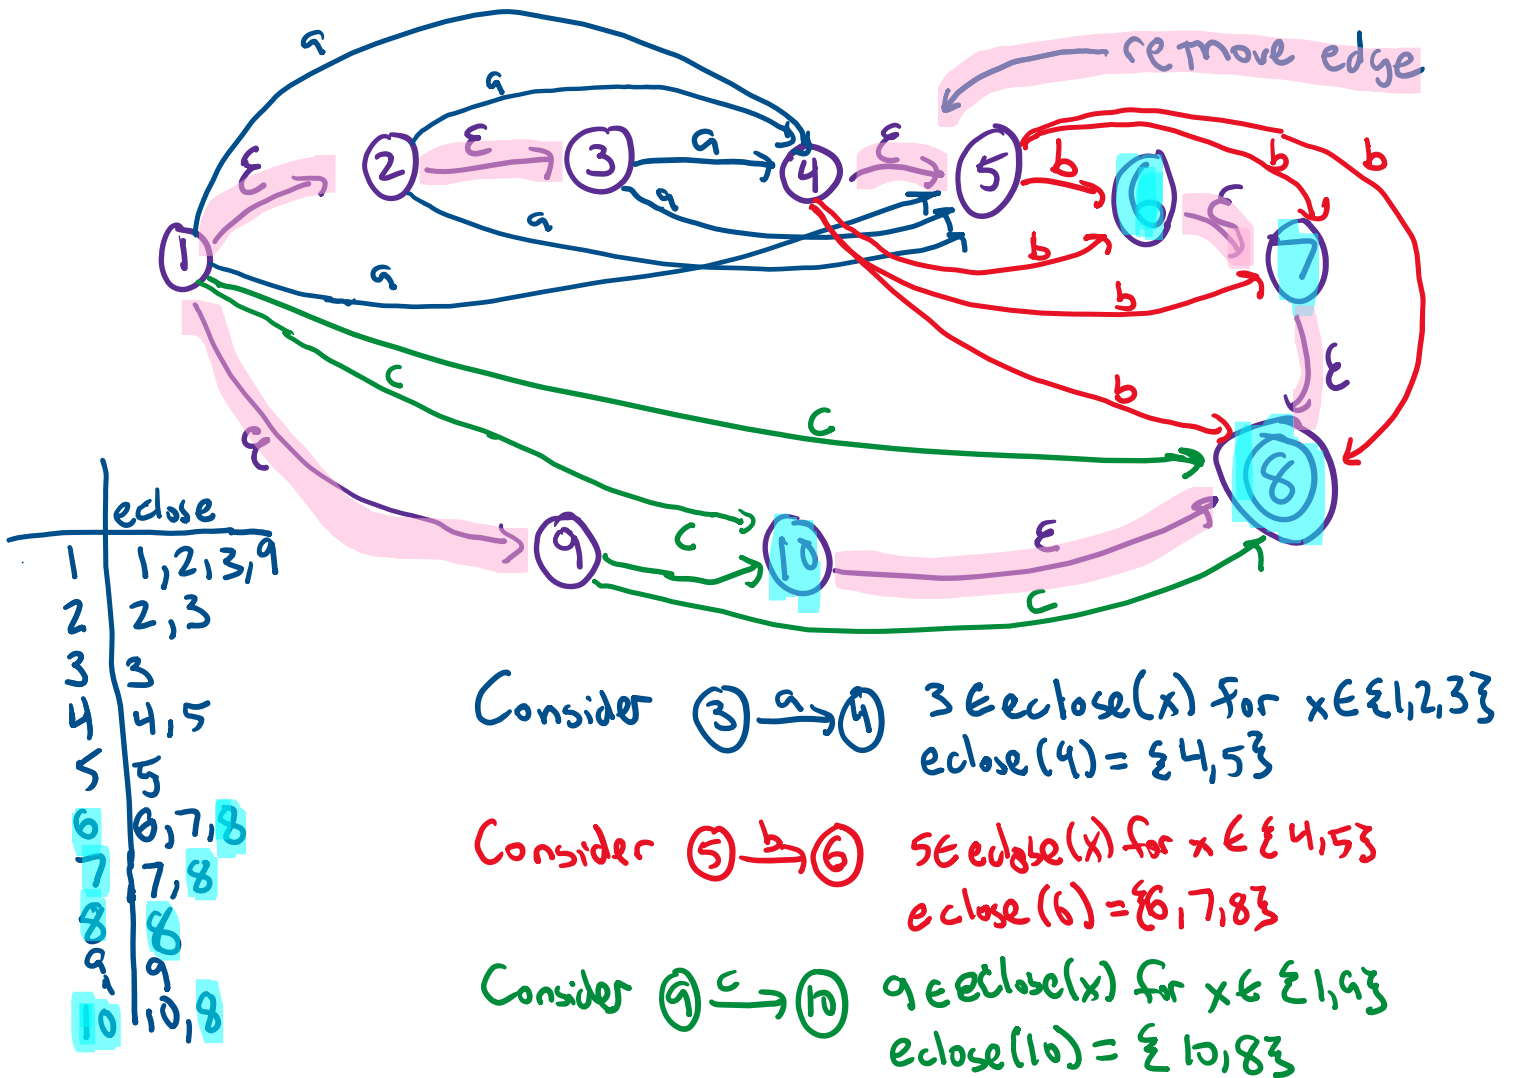 remove edge
a
a
ε
ε
a
ε
b
b
b
1
2
3
4
5
6
7
ε
a
a
a
b
b
ε
c
c
b
ε
8
9
c
10
ε
c
eclose
1 1,2,3,9
2 2,3
3 3
4 4,5
5 5
6 6,7,8
7 7,8
8 8
9 9
10 10,8
Consider 3 a 4 3∈eclose(x) for x∈{1,2,3}
eclose(4)={4,5}
Consider 5 b 6 5∈eclose(x) for x∈{4,5}
eclose(6)={6,7,8}
Consider 9 c 10 9∈eclose(x) for x∈{1,9}
eclose(10)={10,8}